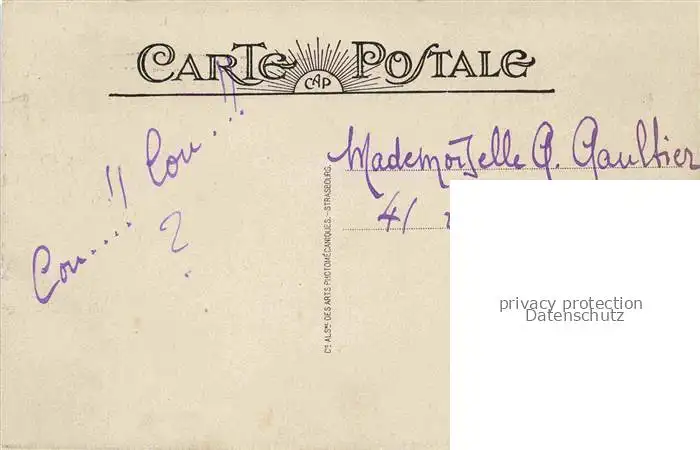 CARTE POSTALE
CAP
Cou....!! Cou...!!
?
Cie ALSNE DES ARTS PHOTOMÉCANIQUES. - STRASBOURG.
Mademoiselle G. Gaultier
41
privacy protection
Datenschutz